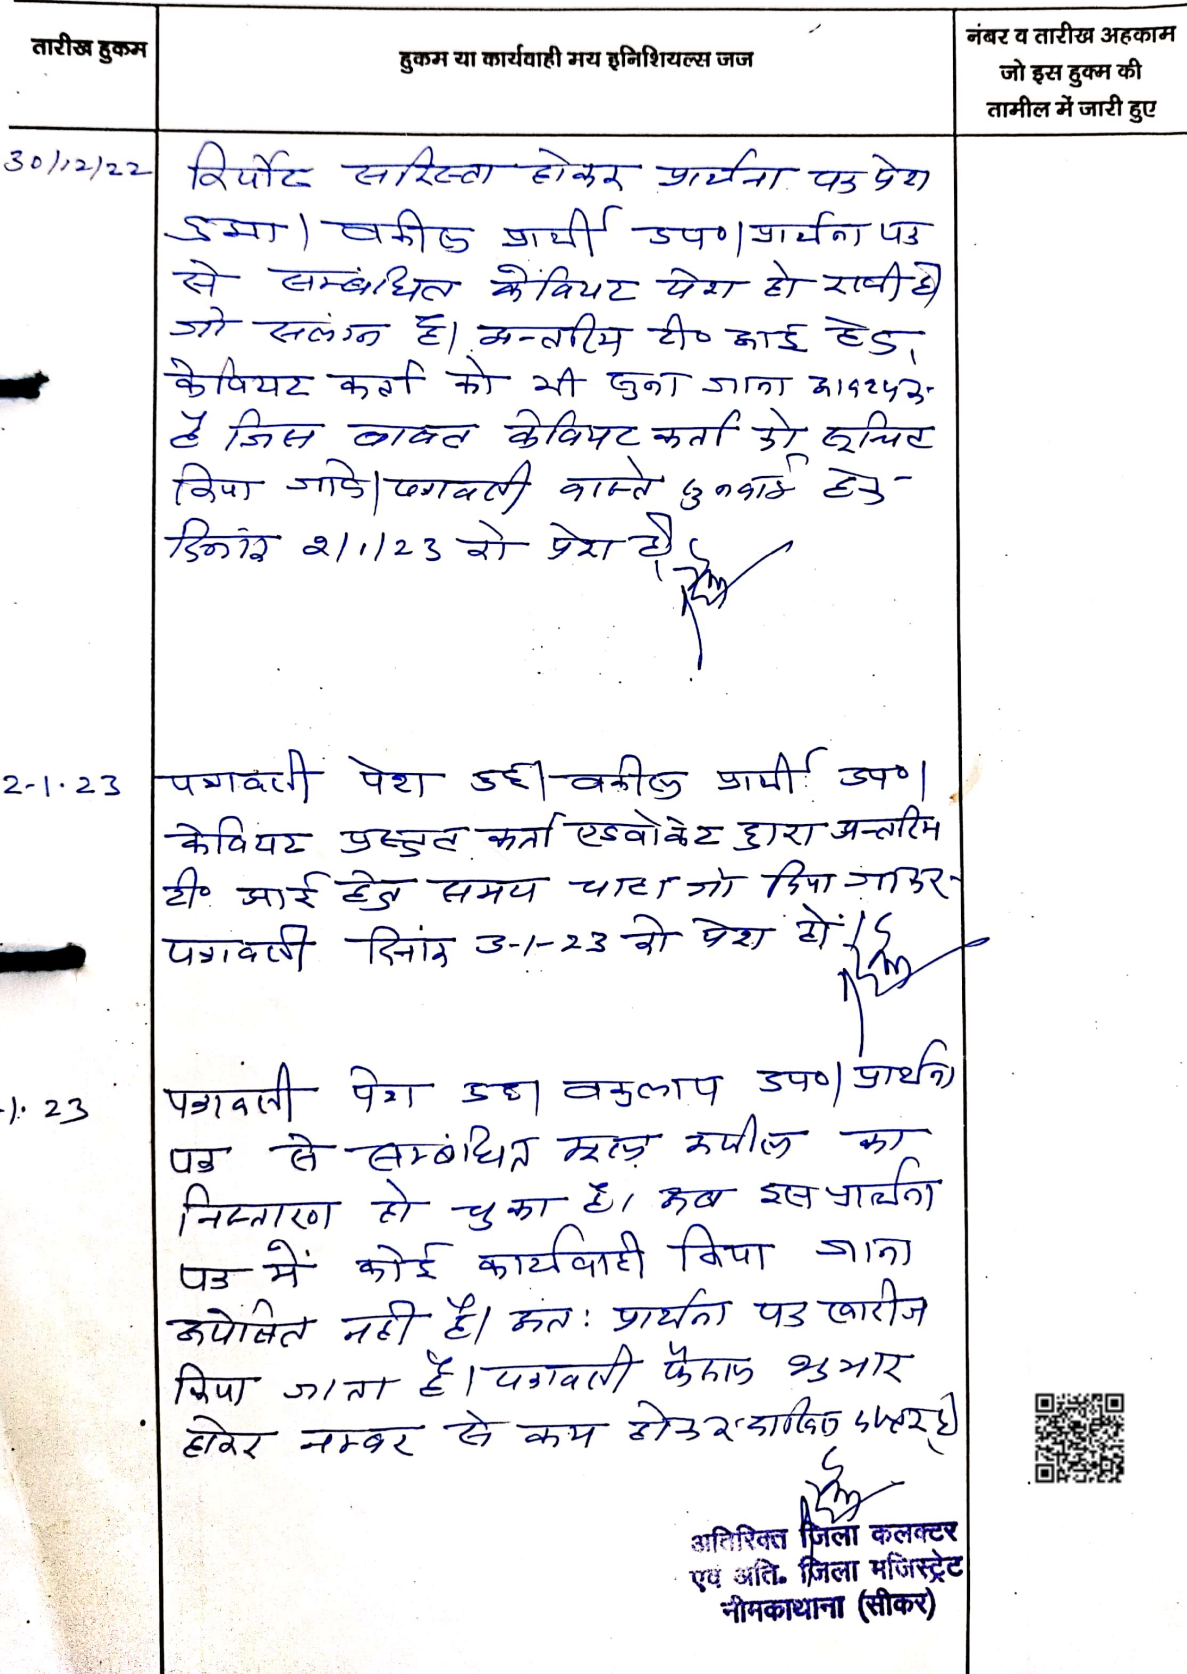 तारीख हुकम
हुकम या कार्यवाही मय इनिशियल्स जज
नंबर व तारीख अहकाम
जो इस हुक्म की
तामील में जारी हुए
30/12/22
रिर्पोट सरिस्ता होकर प्रार्थना पत्र पेश
हुआ। वकील प्रार्थी उप०। प्रार्थना पत्र
से सम्बंधित केवियट पेश हो रखी है
जो सलंग्न है। अन्तरिम टी० आई हेतु
केवियट कर्ता को भी सुना जाना आवश्यक
है जिस बाबत केवियट कर्ता को सूचित
किया जावे। पत्रावली वास्ते सुनवाई हेतु
दिनांक 2/1/23 को पेश हो।
2-1-23
पत्रावली पेश हुई। वकील प्रार्थी उप०।
केवियट प्रस्तुत कर्ता एडवोकेट द्वारा अन्तरिम
टी० आई हेतु समय चाहा जो दिया जाकर
पत्रावली दिनांक 3-1-23 को पेश हो।
-1-23
पत्रावली पेश हुई। वकुलाय उप०। प्रार्थना
पत्र से सम्बंधित मूल अपील का
निस्तारण हो चुका है। अब इस प्रार्थना
पत्र में कोई कार्यवाही किया जाना
अपेक्षित नही है। अतः प्रार्थना पत्र खारीज
किया जाता है। पत्रावली फैसल शुमार
होकर नम्बर से कम होकर दाखिल दफ्तर हो
अतिरिक्त जिला कलक्टर
एवं अति. जिला मजिस्ट्रेट
नीमकाथाना (सीकर)